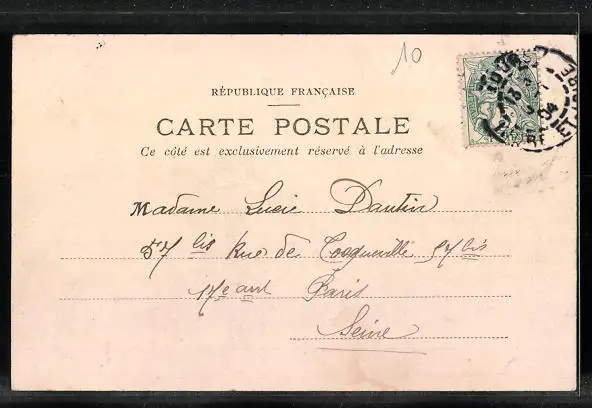 10
RÉPUBLIQUE FRANÇAISE
CARTE POSTALE
Ce côté est exclusivement réservé à l'adresse
Madame Lucie Dautin
57 bis Rue de Tocqueville 57 bis
17e arrt Paris
Seine
TOURS
13
04
ET-LOIRE